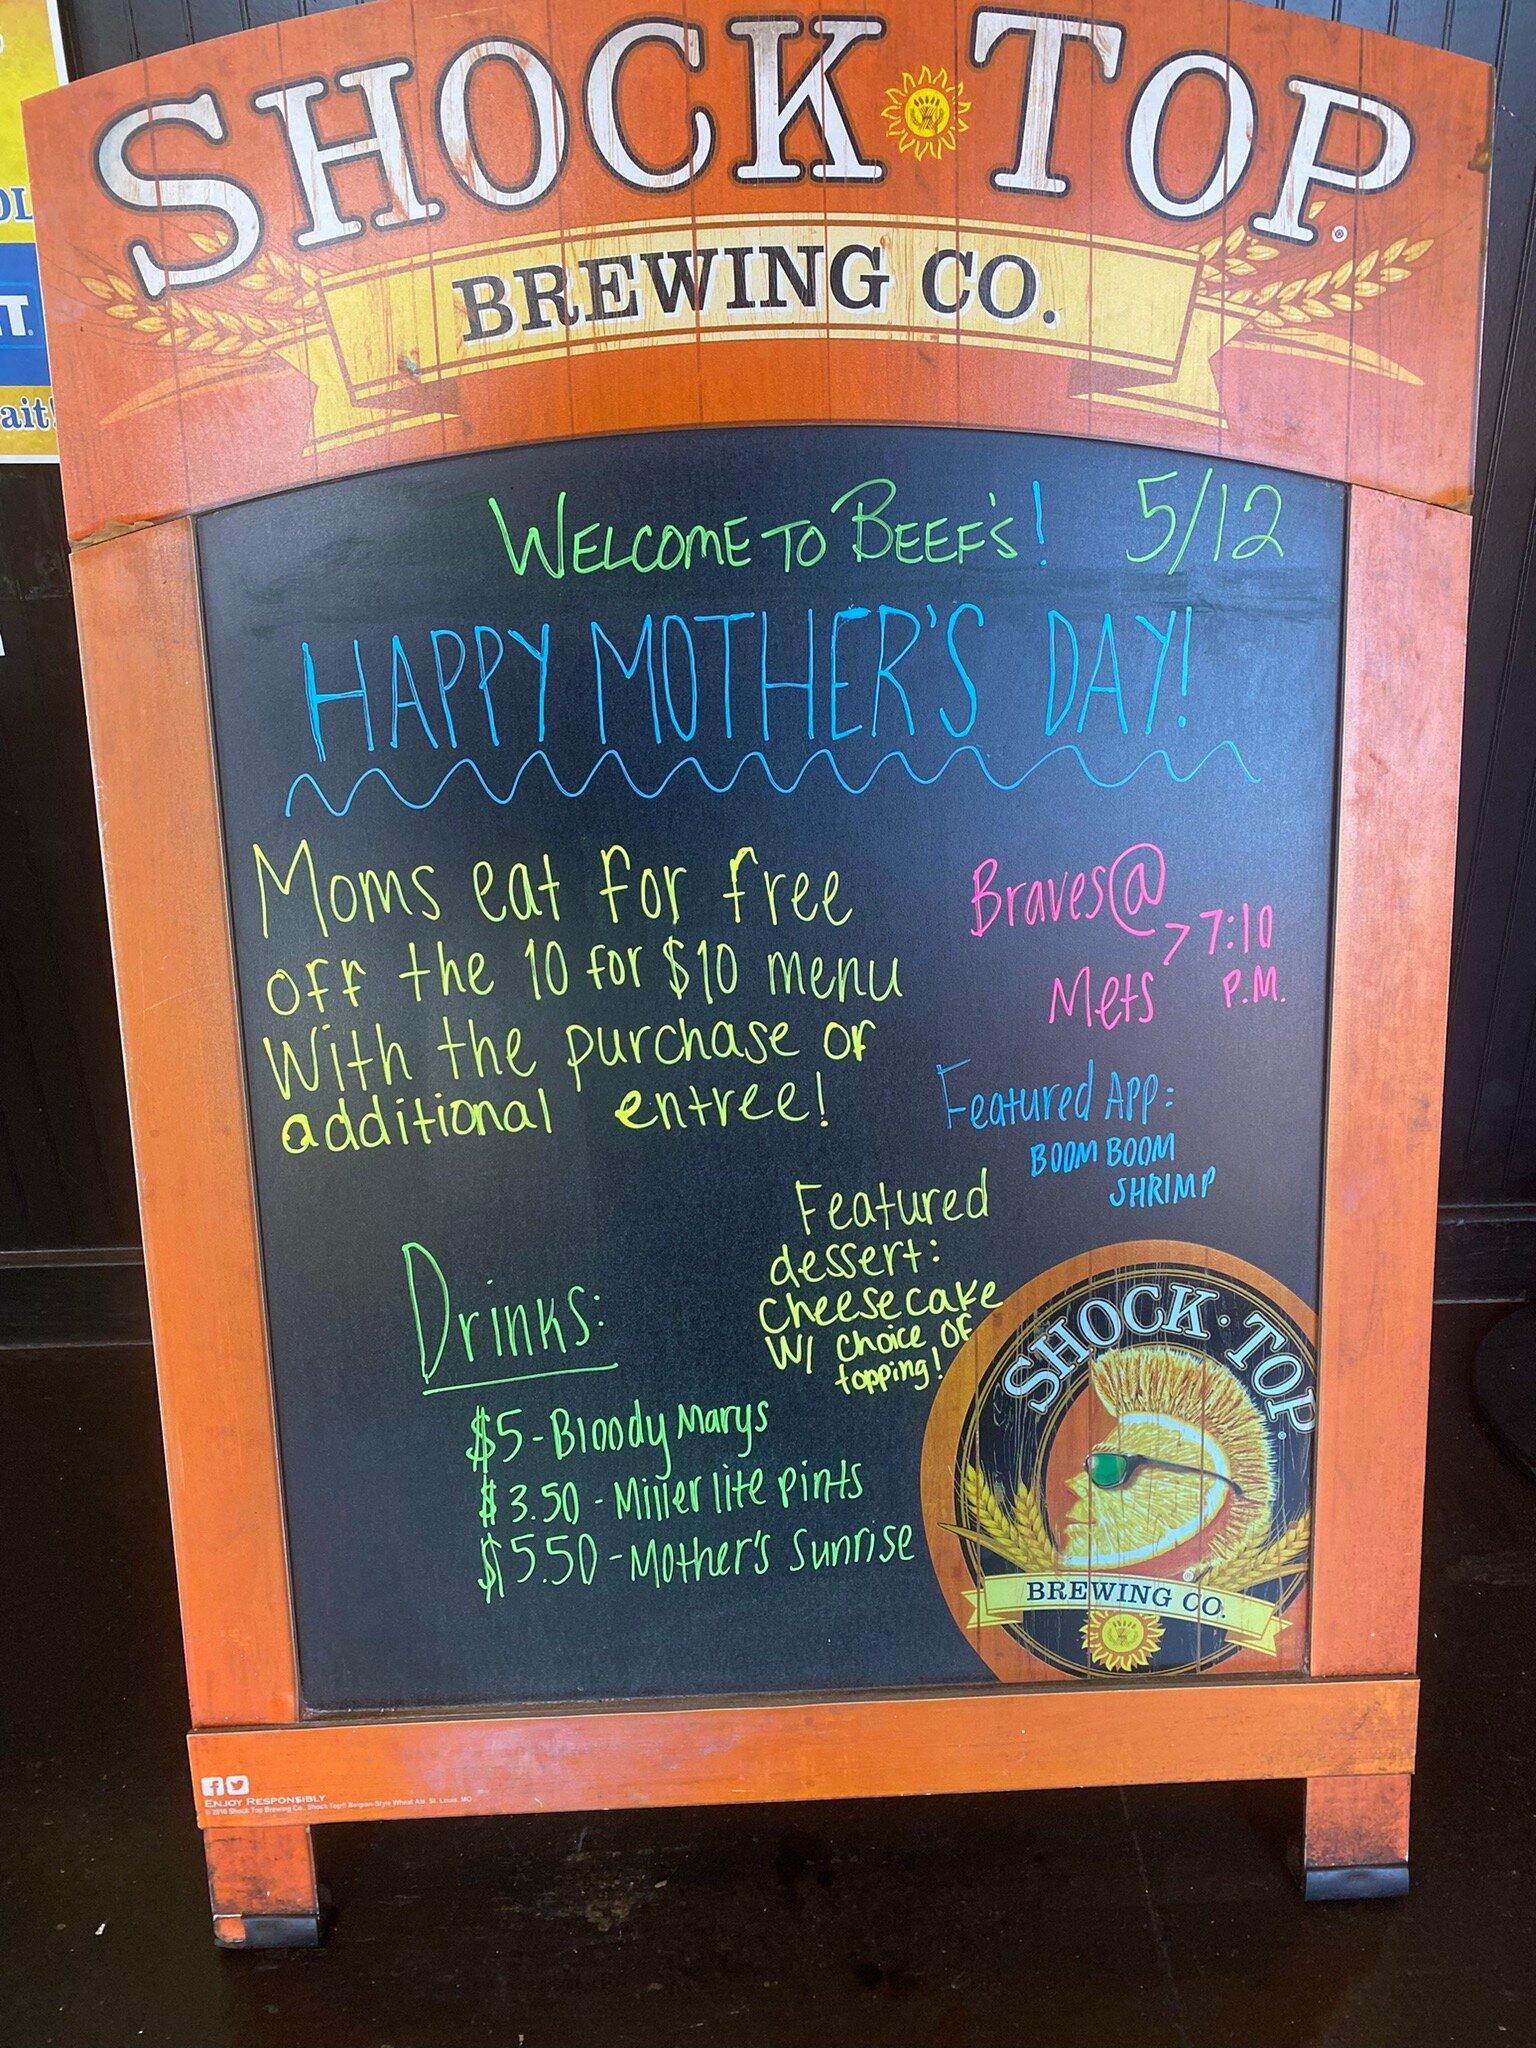 SHOCK TOP®
BREWING CO.
OL
IT.
ait!
WELCOME TO BEEF'S! 5/12
HAPPY MOTHER'S DAY!
Moms eat for free
off the 10 for $10 menu
With the purchase of
additional entree!
Braves@
Mets
> 7:10
P.M.
Featured App:
BOOM BOOM
SHRIMP
Featured
dessert:
Cheesecake
W/ choice of
topping!
Drinks:
$5-Bloody Marys
$3.50 - Miller lite pints
$5.50 - Mother's Sunrise
SHOCK · TOP®
BREWING CO.
ENJOY RESPONSIBLY
© 2016 Shock Top Brewing Co., Shock Top® Belgian-Style Wheat Ale, St. Louis, MO